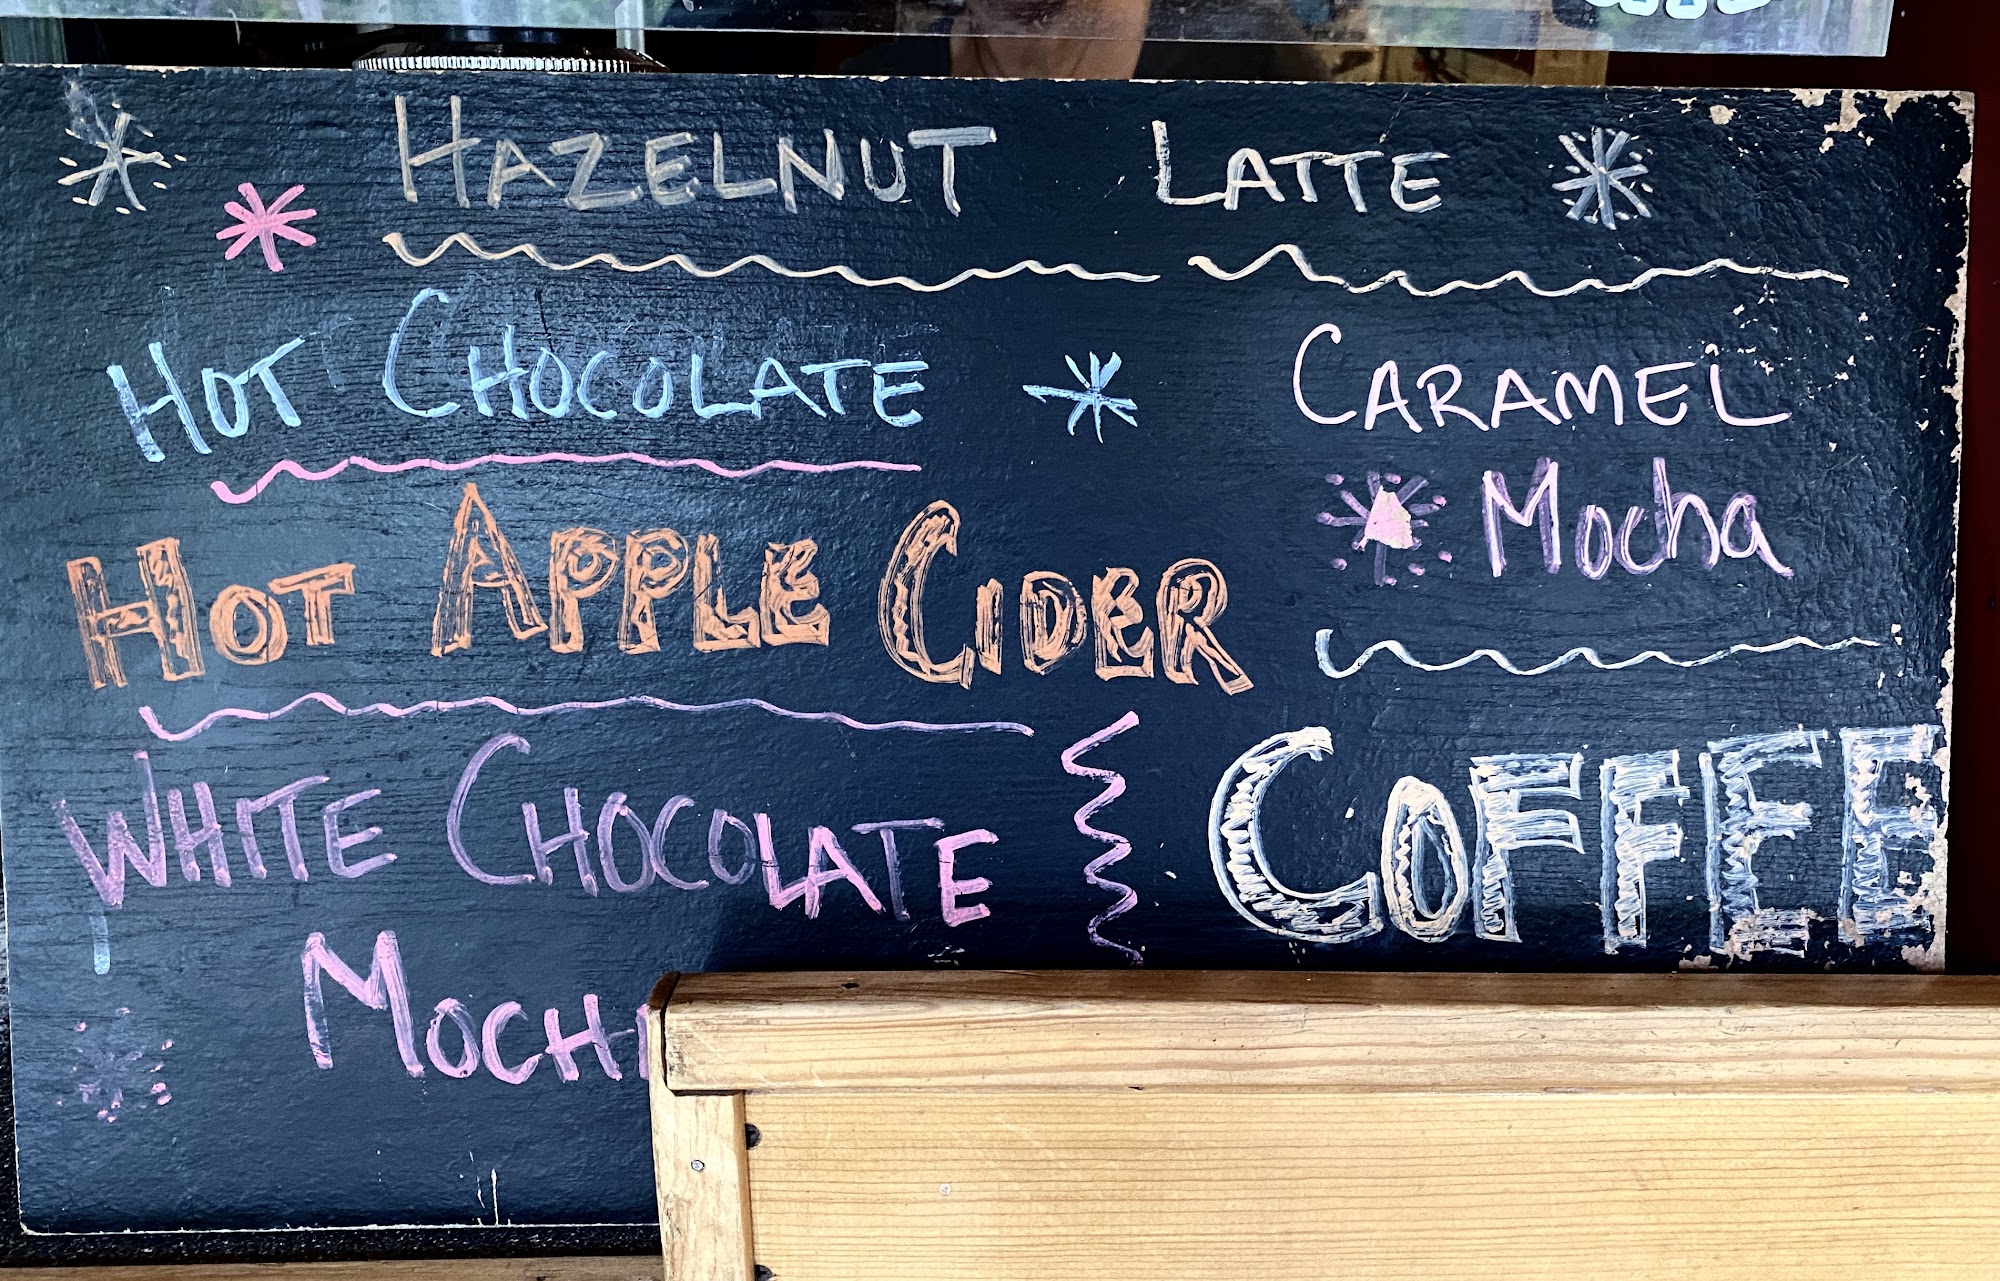 HAZELNUT LATTE
HOT CHOCOLATE
CARAMEL
Mocha
HOT APPLE CIDER
WHITE CHOCOLATE
MOCH
COFFEE